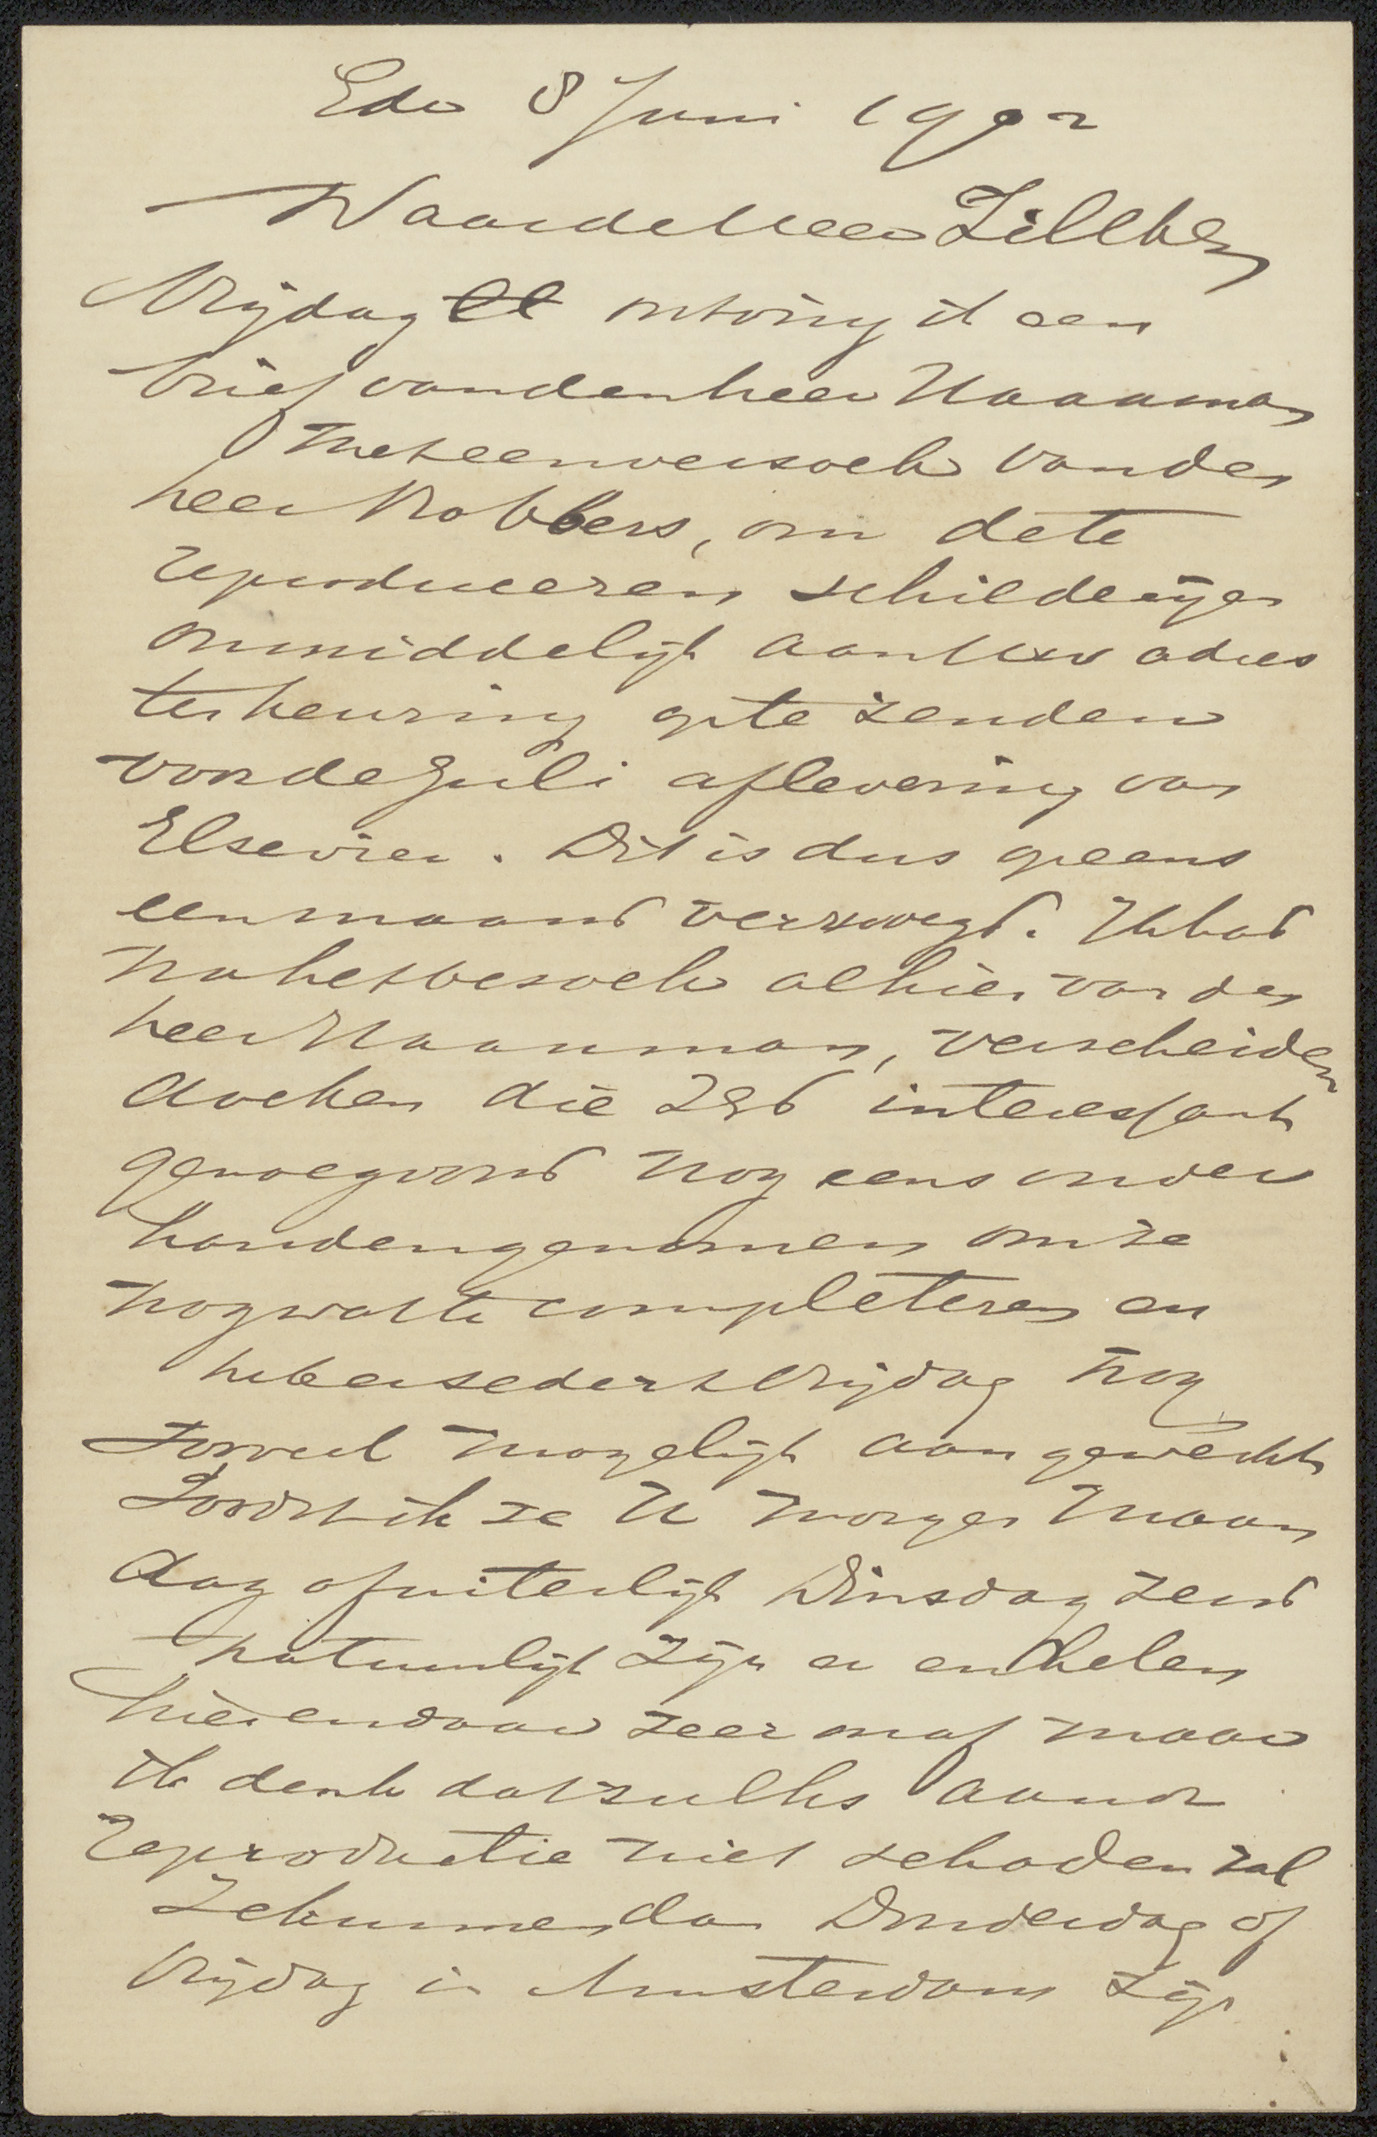 Ede 8 Juni 1902
Waarde Heer Zilcken
Vrijdag ll ontving ik een
brief van den heer Haanman
met een verzoek van den
heer Robbers, om de te
reproduceeren schilderijen
onmiddelijk aan Uw adres
ter keuring op te zenden
voor de Juli aflevering van
Elsevier. Dit is dus opeens
een maand vervroegd. Ik had
na het bezoek alhier van den
heer Haanman, verscheiden
doeken die ZEd interessant
genoeg vond nog eens onder
handen genomen om ze
nog wat te completeren en
heb er sedert Vrijdag nog
zooveel mogelijk aan gewerkt
zoodat ik ze U morgen Maan
dag of uiterlijk Dinsdag zend
natuurlijk zijn er enkelen
hier en daar zeer onaf maar
ik denk dat zulks aan de
reproductie niet schaden zal
Ze kunnen dan Donderdag of
Vrijdag in Amsterdam zijn